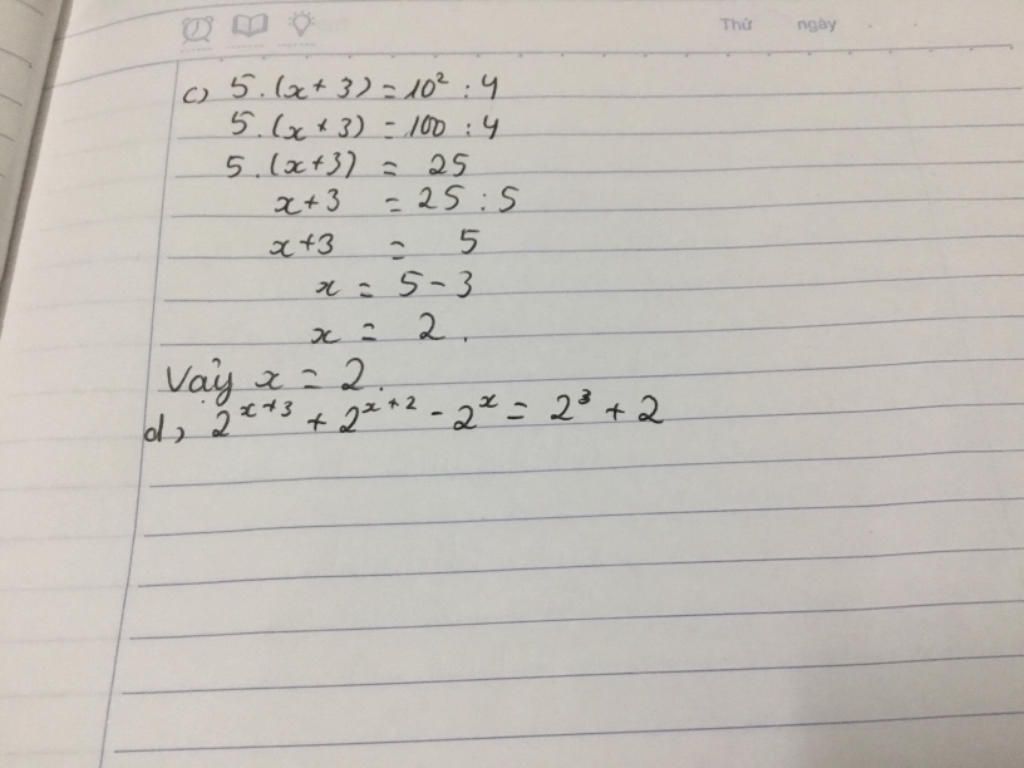 Thứ ngày
c) 5.(x+3) = 10² : 4
5.(x+3) = 100 : 4
5.(x+3) = 25
x+3 = 25 : 5
x+3 = 5
x = 5 - 3
x = 2.
Vậy x = 2.
d) 2ˣ⁺³ + 2ˣ⁺² - 2ˣ = 2³ + 2